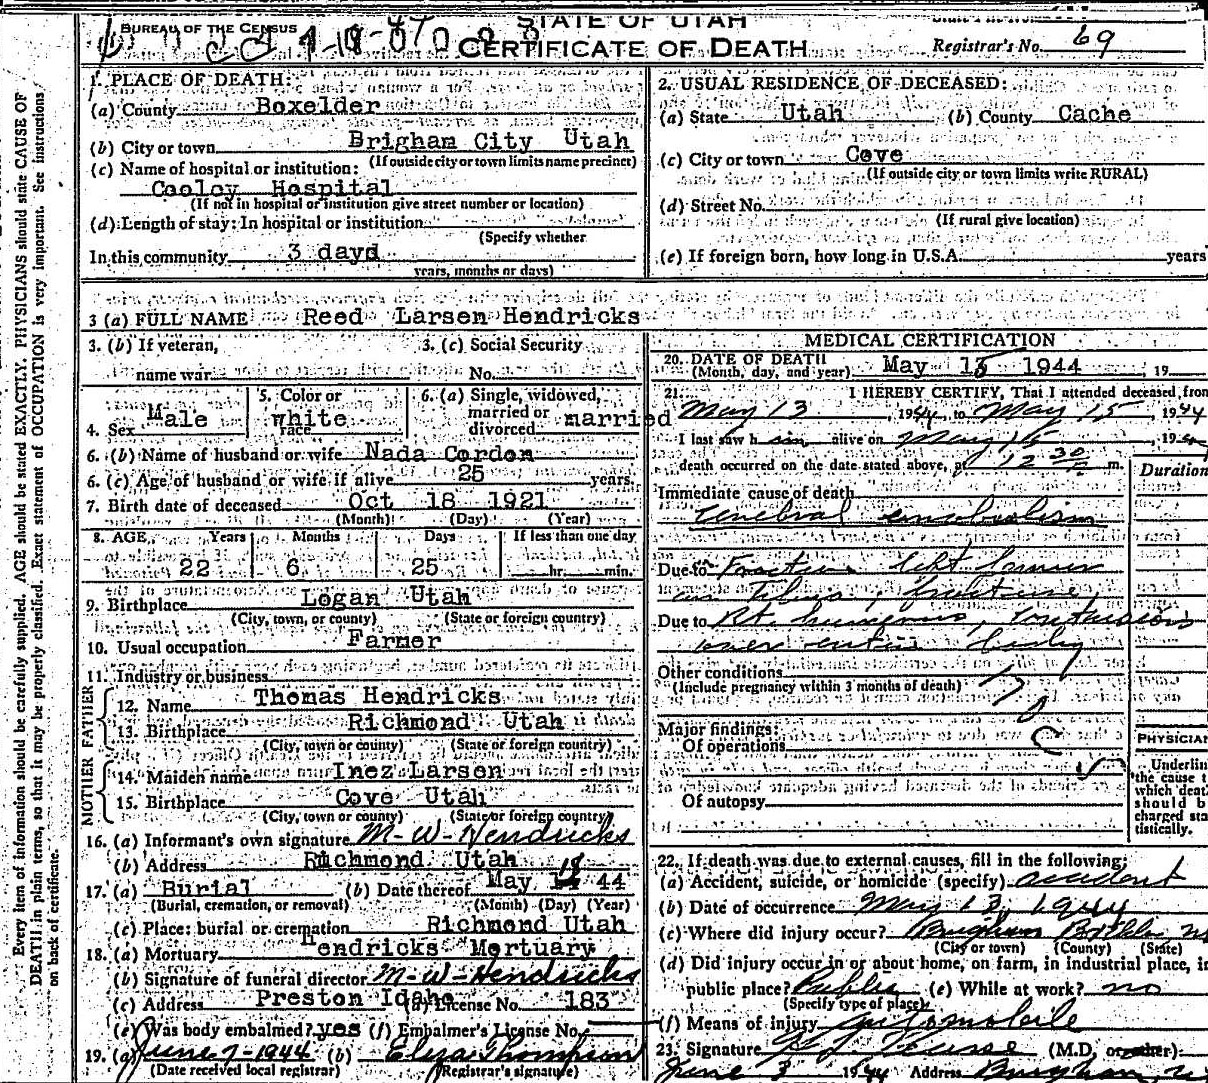 BUREAU OF THE CENSUS
STATE OF UTAH
CERTIFICATE OF DEATH
Registrar's No. 69
Every item of information should be carefully supplied. AGE should be stated EXACTLY. PHYSICIANS should state CAUSE OF
DEATH in plain terms, so that it may be properly classified. Exact statement of OCCUPATION is very important. See instructions
on back of certificate.
1. PLACE OF DEATH:
(a) County Boxelder
Brigham City Utah
(b) City or town
(If outside city or town limits name precinct)
(c) Name of hospital or institution:
Cooley Hospital
(If not in hospital or institution give street number or location)
(d) Length of stay: In hospital or institution
(Specify whether
In this community 3 dayd
years, months or days)
2. USUAL RESIDENCE OF DECEASED:
(a) State Utah (b) County Cache
(c) City or town Cove
(If outside city or town limits write RURAL)
(d) Street No.
(If rural give location)
(e) If foreign born, how long in U.S.A. years
3 (a) FULL NAME Reed Larsen Hendricks
3. (b) If veteran,
name war
3. (c) Social Security
No.
4. Sex Male
5. Color or
race white
6. (a) Single, widowed,
married or
divorced married
6. (b) Name of husband or wife Nada Cordon
6. (c) Age of husband or wife if alive 25 years.
7. Birth date of deceased Oct 18 1921
(Month) (Day) (Year)
8. AGE Years Months Days If less than one day
22 6 25 hr. min.
9. Birthplace Logan Utah
(City, town, or county) (State or foreign country)
10. Usual occupation Farmer
11. Industry or business
FATHER
12. Name Thomas Hendricks
13. Birthplace Richmond Utah
(City, town or county) (State or foreign country)
MOTHER
14. Maiden name Inez Larsen
15. Birthplace Cove Utah
(City, town or county) (State or foreign country)
16. (a) Informant's own signature M-W-Hendricks
(b) Address Richmond Utah
17. (a) Burial (b) Date thereof May 18 44
(Burial, cremation, or removal) (Month) (Day) (Year)
(c) Place: burial or cremation Richmond Utah
18. (a) Mortuary Hendricks Mortuary
(b) Signature of funeral director M-W-Hendricks
(c) Address Preston Idaho (d) License No. 183
(e) Was body embalmed? yes (f) Embalmer's License No.
19. (a) June 7-1944 (b) Eliza Thompson
(Date received local registrar) (Registrar's signature)
MEDICAL CERTIFICATION
20. DATE OF DEATH
(Month, day, and year) May 15 1944, 19
21. I HEREBY CERTIFY, That I attended deceased from
May 13, 1944, to May 15, 1944
I last saw h im alive on May 15, 19
death occurred on the date stated above, at 12 30 m.
Duration
Immediate cause of death
cerebral embolism
Due to Fracture left femur
Tibia, fracture,
Due to Rt. humerus, Contusions
over entire body
Other conditions
(Include pregnancy within 3 months of death)
170
C
Major findings:
Of operations
Of autopsy
PHYSICIAN
Underlin
the cause t
which deat
should b
charged sta
tistically.
22. If death was due to external causes, fill in the following:
(a) Accident, suicide, or homicide (specify) accident
(b) Date of occurrence May 13, 1944
(c) Where did injury occur? Brigham
(City or town) (County) (State)
(d) Did injury occur in or about home, on farm, in industrial place, in
public place? Public (e) While at work? no
(Specify type of place)
(f) Means of injury automobile
23. Signature (M.D. or other):
June 3 1944 Address Brigham